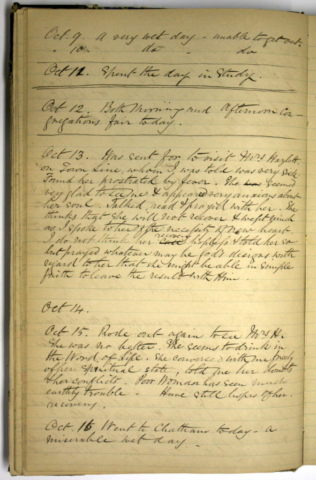 Oct. 9. A very wet day - unable to get out.
" 10. do do
Oct 11. Spent the day in Study.
Oct 12. Both Morning and Afternoon Con-
gregations fair today.
Oct 13. Was sent for to visit Mrs
on Town Line, whom I was told was very sick
Found her prostrated by fever. She seemed
very glad to see me & appeared very anxious about
her soul. Talked, read & prayed with her. She
thinks that she will not recover & wept much
as I spoke to her of the necessity of a new heart
I do not think her recovery hopeless & told her so
but prayed whatever may be God's designs with
regard to her that she might be able in simple
faith to leave the result with Him.
Oct 14.
Oct 15. Rode out again to see Mrs H.
She was no better. She seems to drink in
the Word of Life. She conversed with me freely
of her spiritual state, told me her doubts
& her conflicts. Poor Woman has seen much
earthly trouble - Have still hopes of her
recovery.
Oct. 16. Went to Chatham to-day - a
miserable wet day.